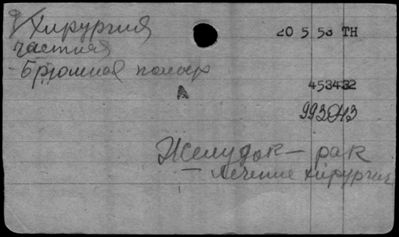 Хирургия
частная
- Брюшная полость
20 5 58 TH
A
453432
993043
Желудок — рак
— Лечение хирургич.